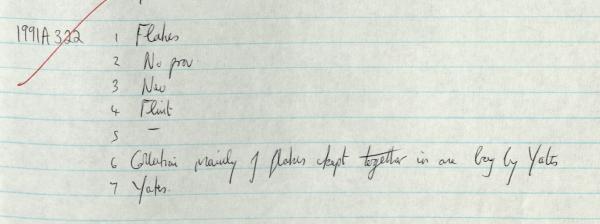 1991A322 1 Flakes
2 No prov
3 Neo
4 Flint
5 —
6 Collection mainly of flakes kept together in one bag by Yates
7 Yates.